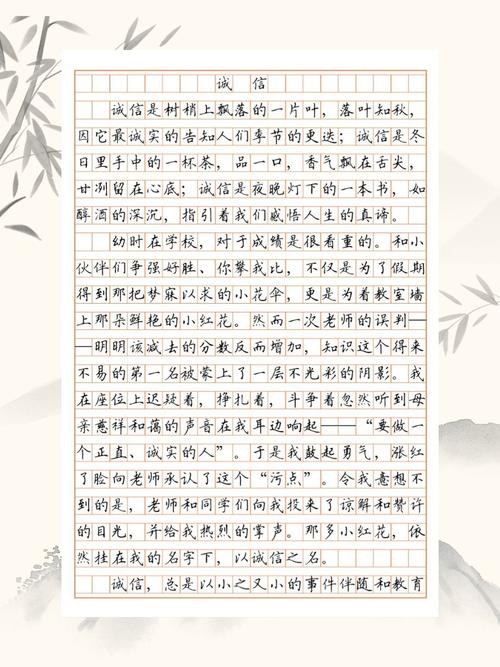 诚信
诚信是树梢上飘落的一片叶，落叶知秋，
因它最诚实的告知人们季节的更迭；诚信是冬
日里手中的一杯茶，品一口，香气飘在舌尖，
甘冽留在心底；诚信是夜晚灯下的一本书，如
醇酒的深沉，指引着我们感悟人生的真谛。
幼时在学校，对于成绩是很看重的。和小
伙伴们争强好胜、你攀我比，不仅是为了假期
得到那把梦寐以求的小花伞，更是为着教室墙
上那朵鲜艳的小红花。然而一次老师的误判—
—明明该减去的分数反而增加，知识这个得来
不易的第一名被蒙上了一层不光彩的阴影。我
在座位上迟疑着，挣扎着，斗争着忽然听到母
亲慈祥和蔼的声音在我耳边响起——“要做一
个正直、诚实的人”。于是我鼓起勇气，涨红
了脸向老师承认了这个“污点”。令我意想不
到的是，老师和同学们向我投来了谅解和赞许
的目光，并给我热烈的掌声。那多小红花，依
然挂在我的名字下，以诚信之名。
诚信，总是以小之又小的事件伴随和教育